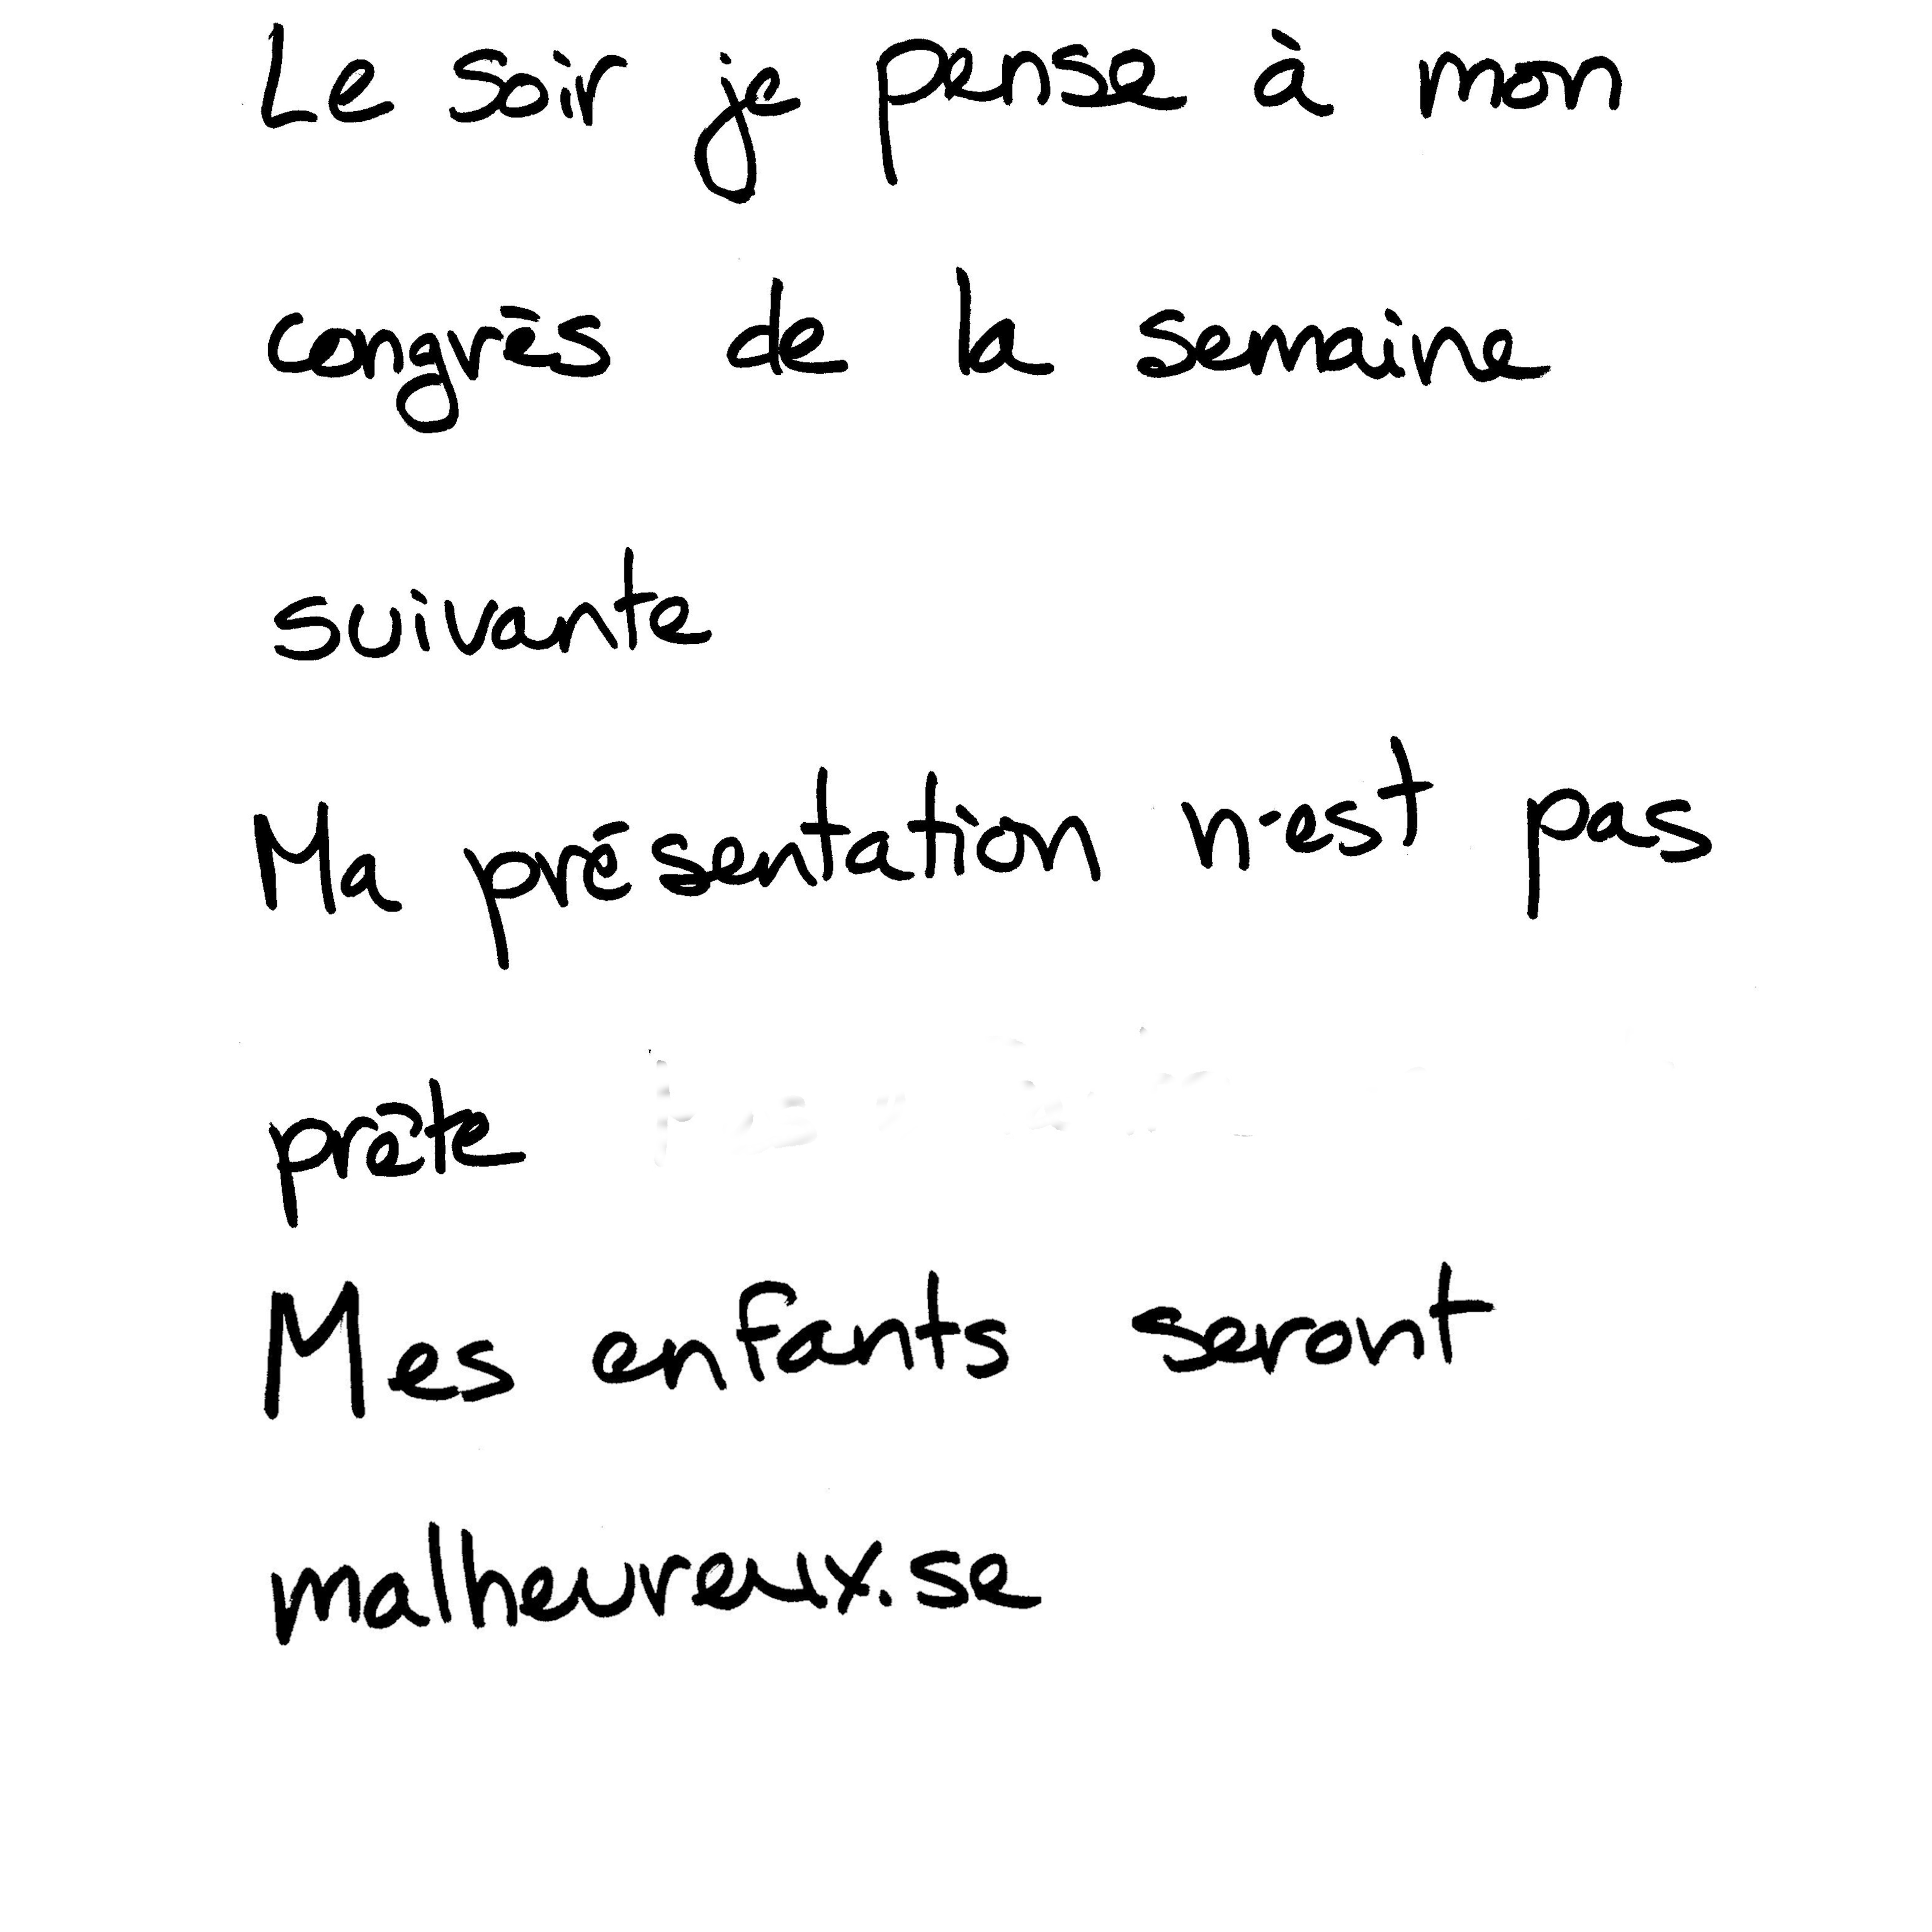 Le soir je pense à mon
congrès de la semaine
suivante
Ma présentation n'est pas
prête
Mes enfants seront
malheureux.se